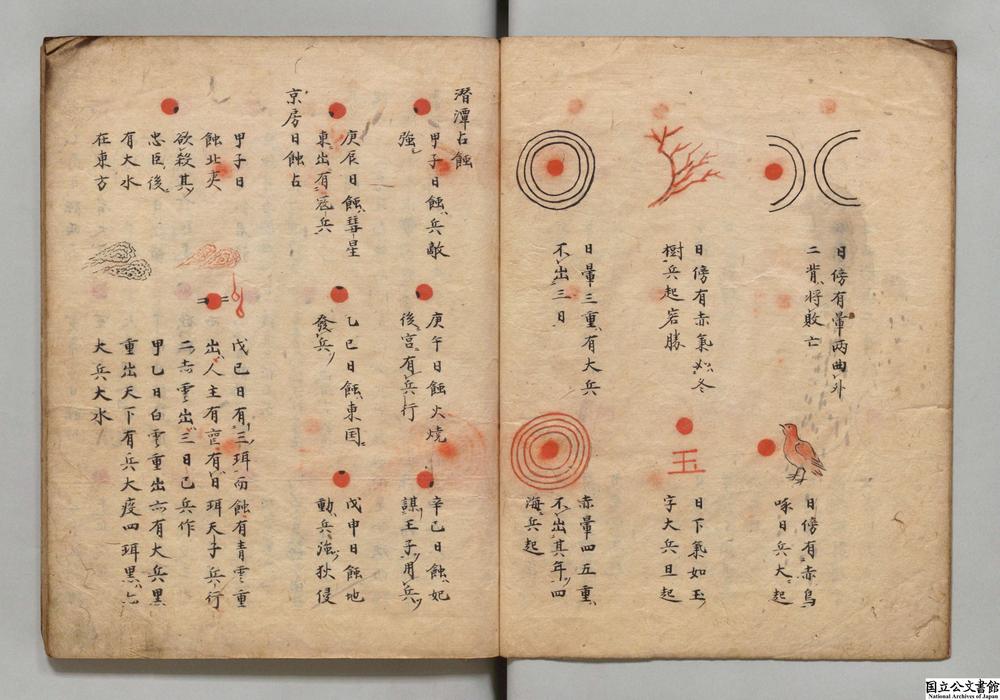 日傍有暈兩曲外
二背将敗亡
日傍有赤烏
啄日兵大起
日傍有赤氣如冬
樹兵起客勝
玉
日下氣如玉
字大兵且起
日暈三重有大兵
不出三日
赤暈四五重
不出其年四
海兵起
潛潭占蝕
甲子日蝕兵敵
強
庚午日蝕火燒
後宮有兵行
辛巳日蝕妃
謀王子用兵
庚辰日蝕彗星
東出有寇兵
乙巳日蝕東国
發兵
戊申日蝕地
動兵強狄侵
京房日蝕占
甲子日
蝕北夷
欲殺其
忠臣後
有大水
在東方
戊巳日有三珥而蝕有青雲重
出人主有有日珥天子兵行
二赤雲出三日已兵作
甲乙日白雲重出六有大兵黒
重出天下有兵大疫四珥黒
大兵大水
国立公文書館
National Archives of Japan